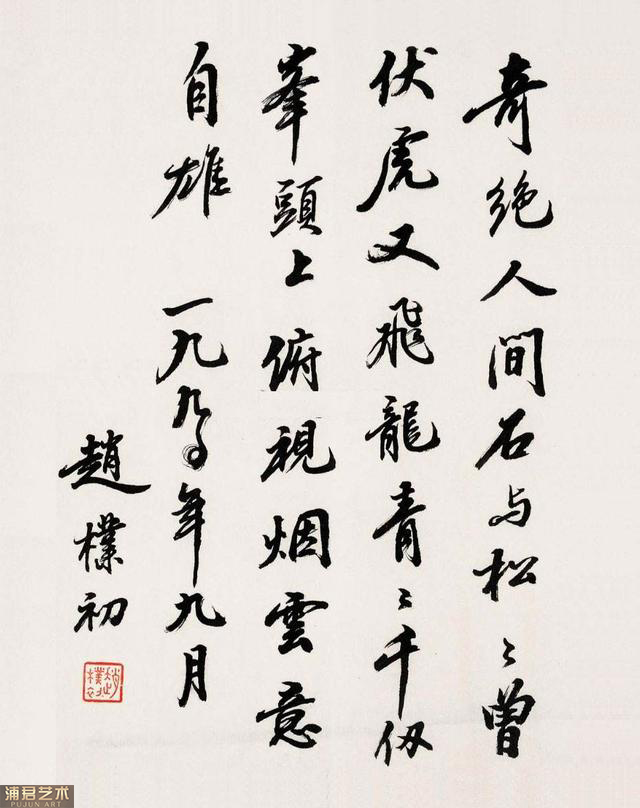 奇绝人间石与松〻曾
伏虎又飛龍青〻千仞
峯頭上俯視烟雲意
自雄 一九九〇年九月
趙樸初
趙樸初
浦君艺术
PUJUN ART